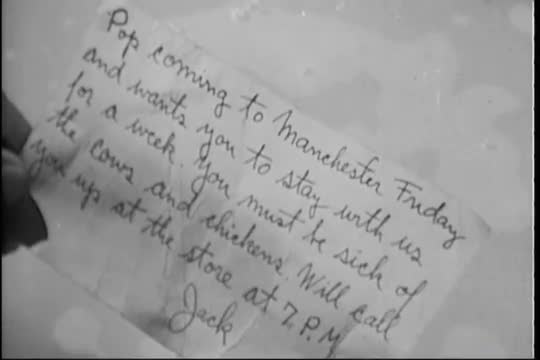 Pop coming to Manchester Friday
and wants you to stay with us
for a week. You must be sick of
the cows and chickens. Will call
you up at the store at 7. P.M
Jack